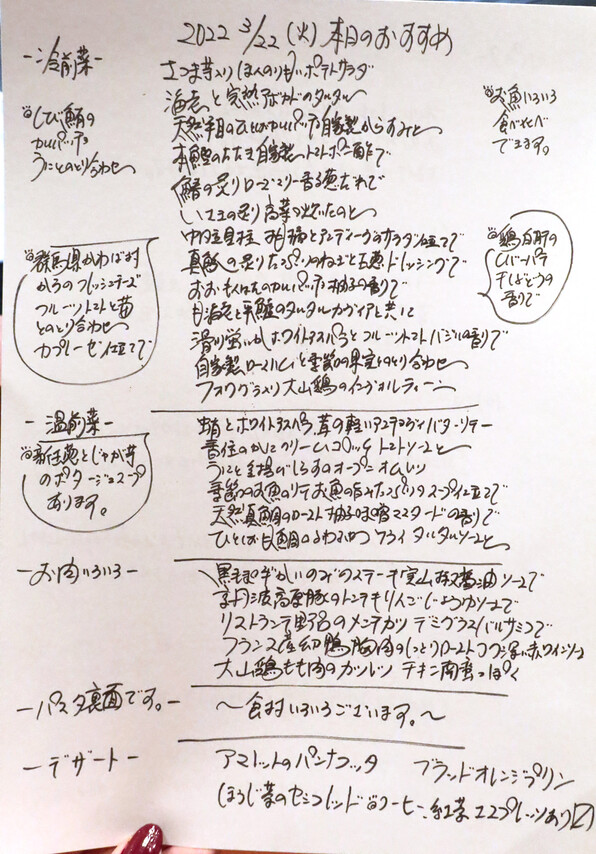 2022 3/22 (火) 本日のおすすめ
-冷前菜-
さつま芋入り ほんのり甘い ポテトサラダ
海老と完熟アボカドのタルタル
天然平目のひとくちカルパッチョ 自家製からすみと
本鰹のたたき 自家製トマトポン酢で
鰆の炙り ローズマリー香る 葱だれで
いわしの炙り 高菜の炊いたのと
真鯛の炙り たっぷりのねぎと ドレッシングで
のカルパッチョ 柚子の香りで
甘海老と平鱸のタルタル カヴィアと共に
滑川蛍いか ホワイトアスパラと フルーツトマト バジルの香りで
自家製ロースハムと季節の果実のとり合わせ
フォワグラ入り 大山鶏のインヴォルティーニ
しび鮪の
カルパッチョ
うにとのとり合わせ
お魚いろいろ
食べくらべ
できます。
群馬県かわば村
からのフレッシュチーズ
フルーツトマトと苺
とのとり合わせ
カプレーゼ仕立てで
鶏白肝の
レバーパテ
干しぶどうの
香りで
-温前菜-
蛸とホワイトアスパラ、茸の軽いアンチョヴィバターソテー
香住のかにクリームコロッケ トマトソースと
うにと釜揚げしらすのオープンオムレツ
季節のお魚のソテー お魚の旨みたっぷり スープ仕立てで
天然真鯛のロースト 柚子味噌マスタードの香りで
ひとしお甘鯛のふわふわ フライ タルタルソースと
とじゃが芋
のポタージュスープ
あります。
-お肉いろいろ-
黒毛和ぎゅ いのみのステーキ 実山椒醤油ソースで
京丹波高原豚のトンテキ りんごじょうゆソースで
リストランテ野呂のメンチカツ デミグラスバルサミコで
フランス産幼鴨胸肉のしっとりロースト コク深い赤ワインソース
大山鶏もも肉のカツレツ チキン南蛮っぽく
-パスタ裏面です。-
〜食材いろいろございます。〜
-デザート-
アマレットのパンナコッタ ブラッドオレンジプリン
ほうじ茶のセミフレッド コーヒー、紅茶 エスプレッソあり